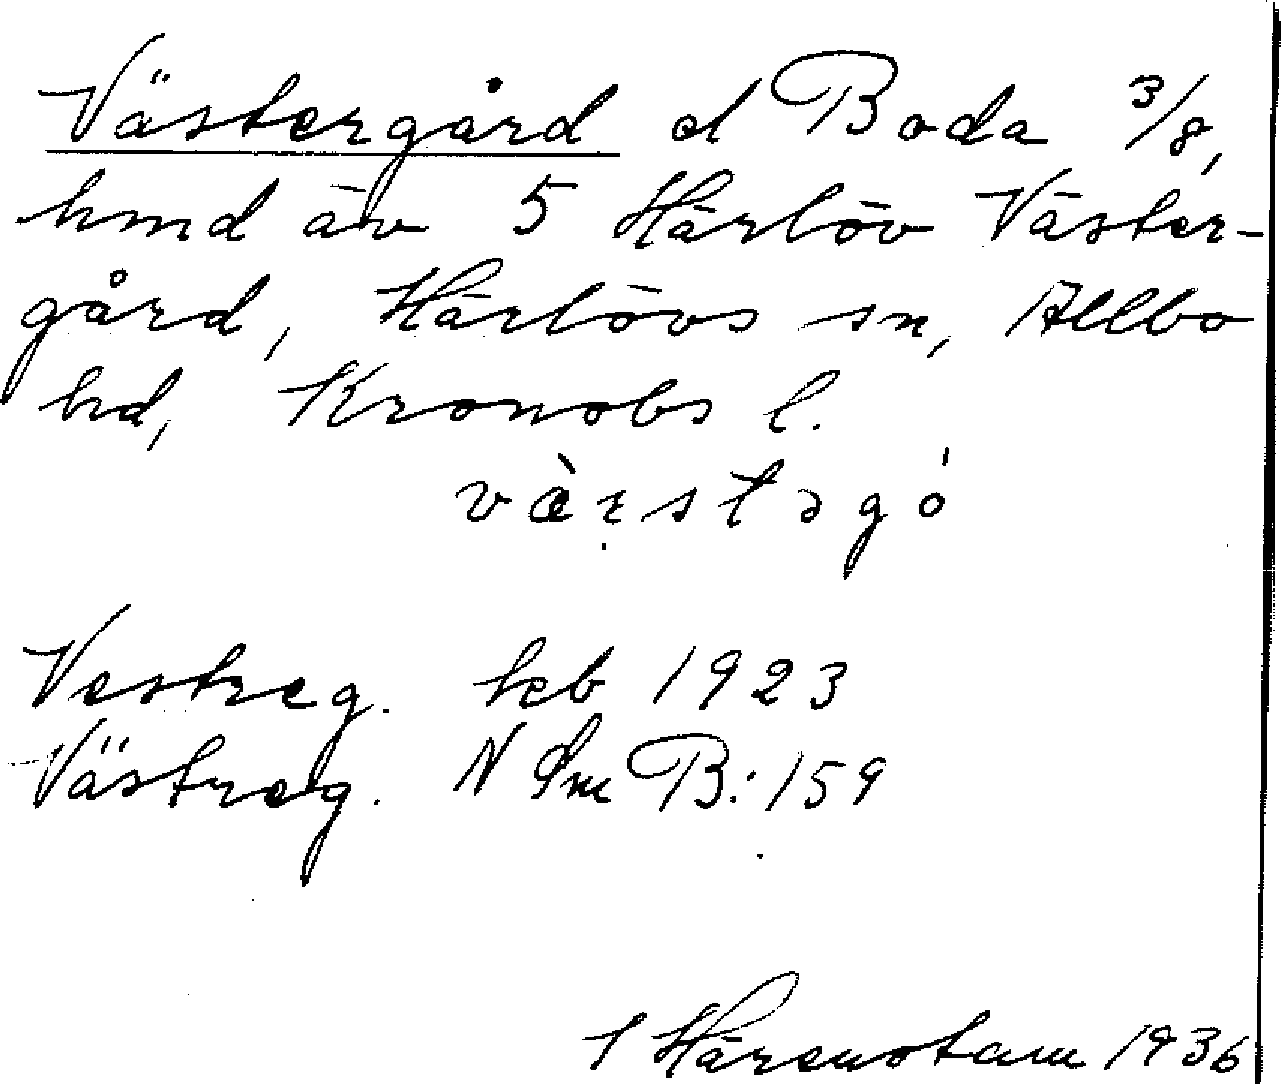 Västergård d Boda 3/8,
hmd äv 5 Härlöv Väster-
gård, Härlövs sn, Allbo
hd, Kronobs l.
væ̀rstəgó
Vestreg. kb 1923
Västreg. N Sm B: 159
1936